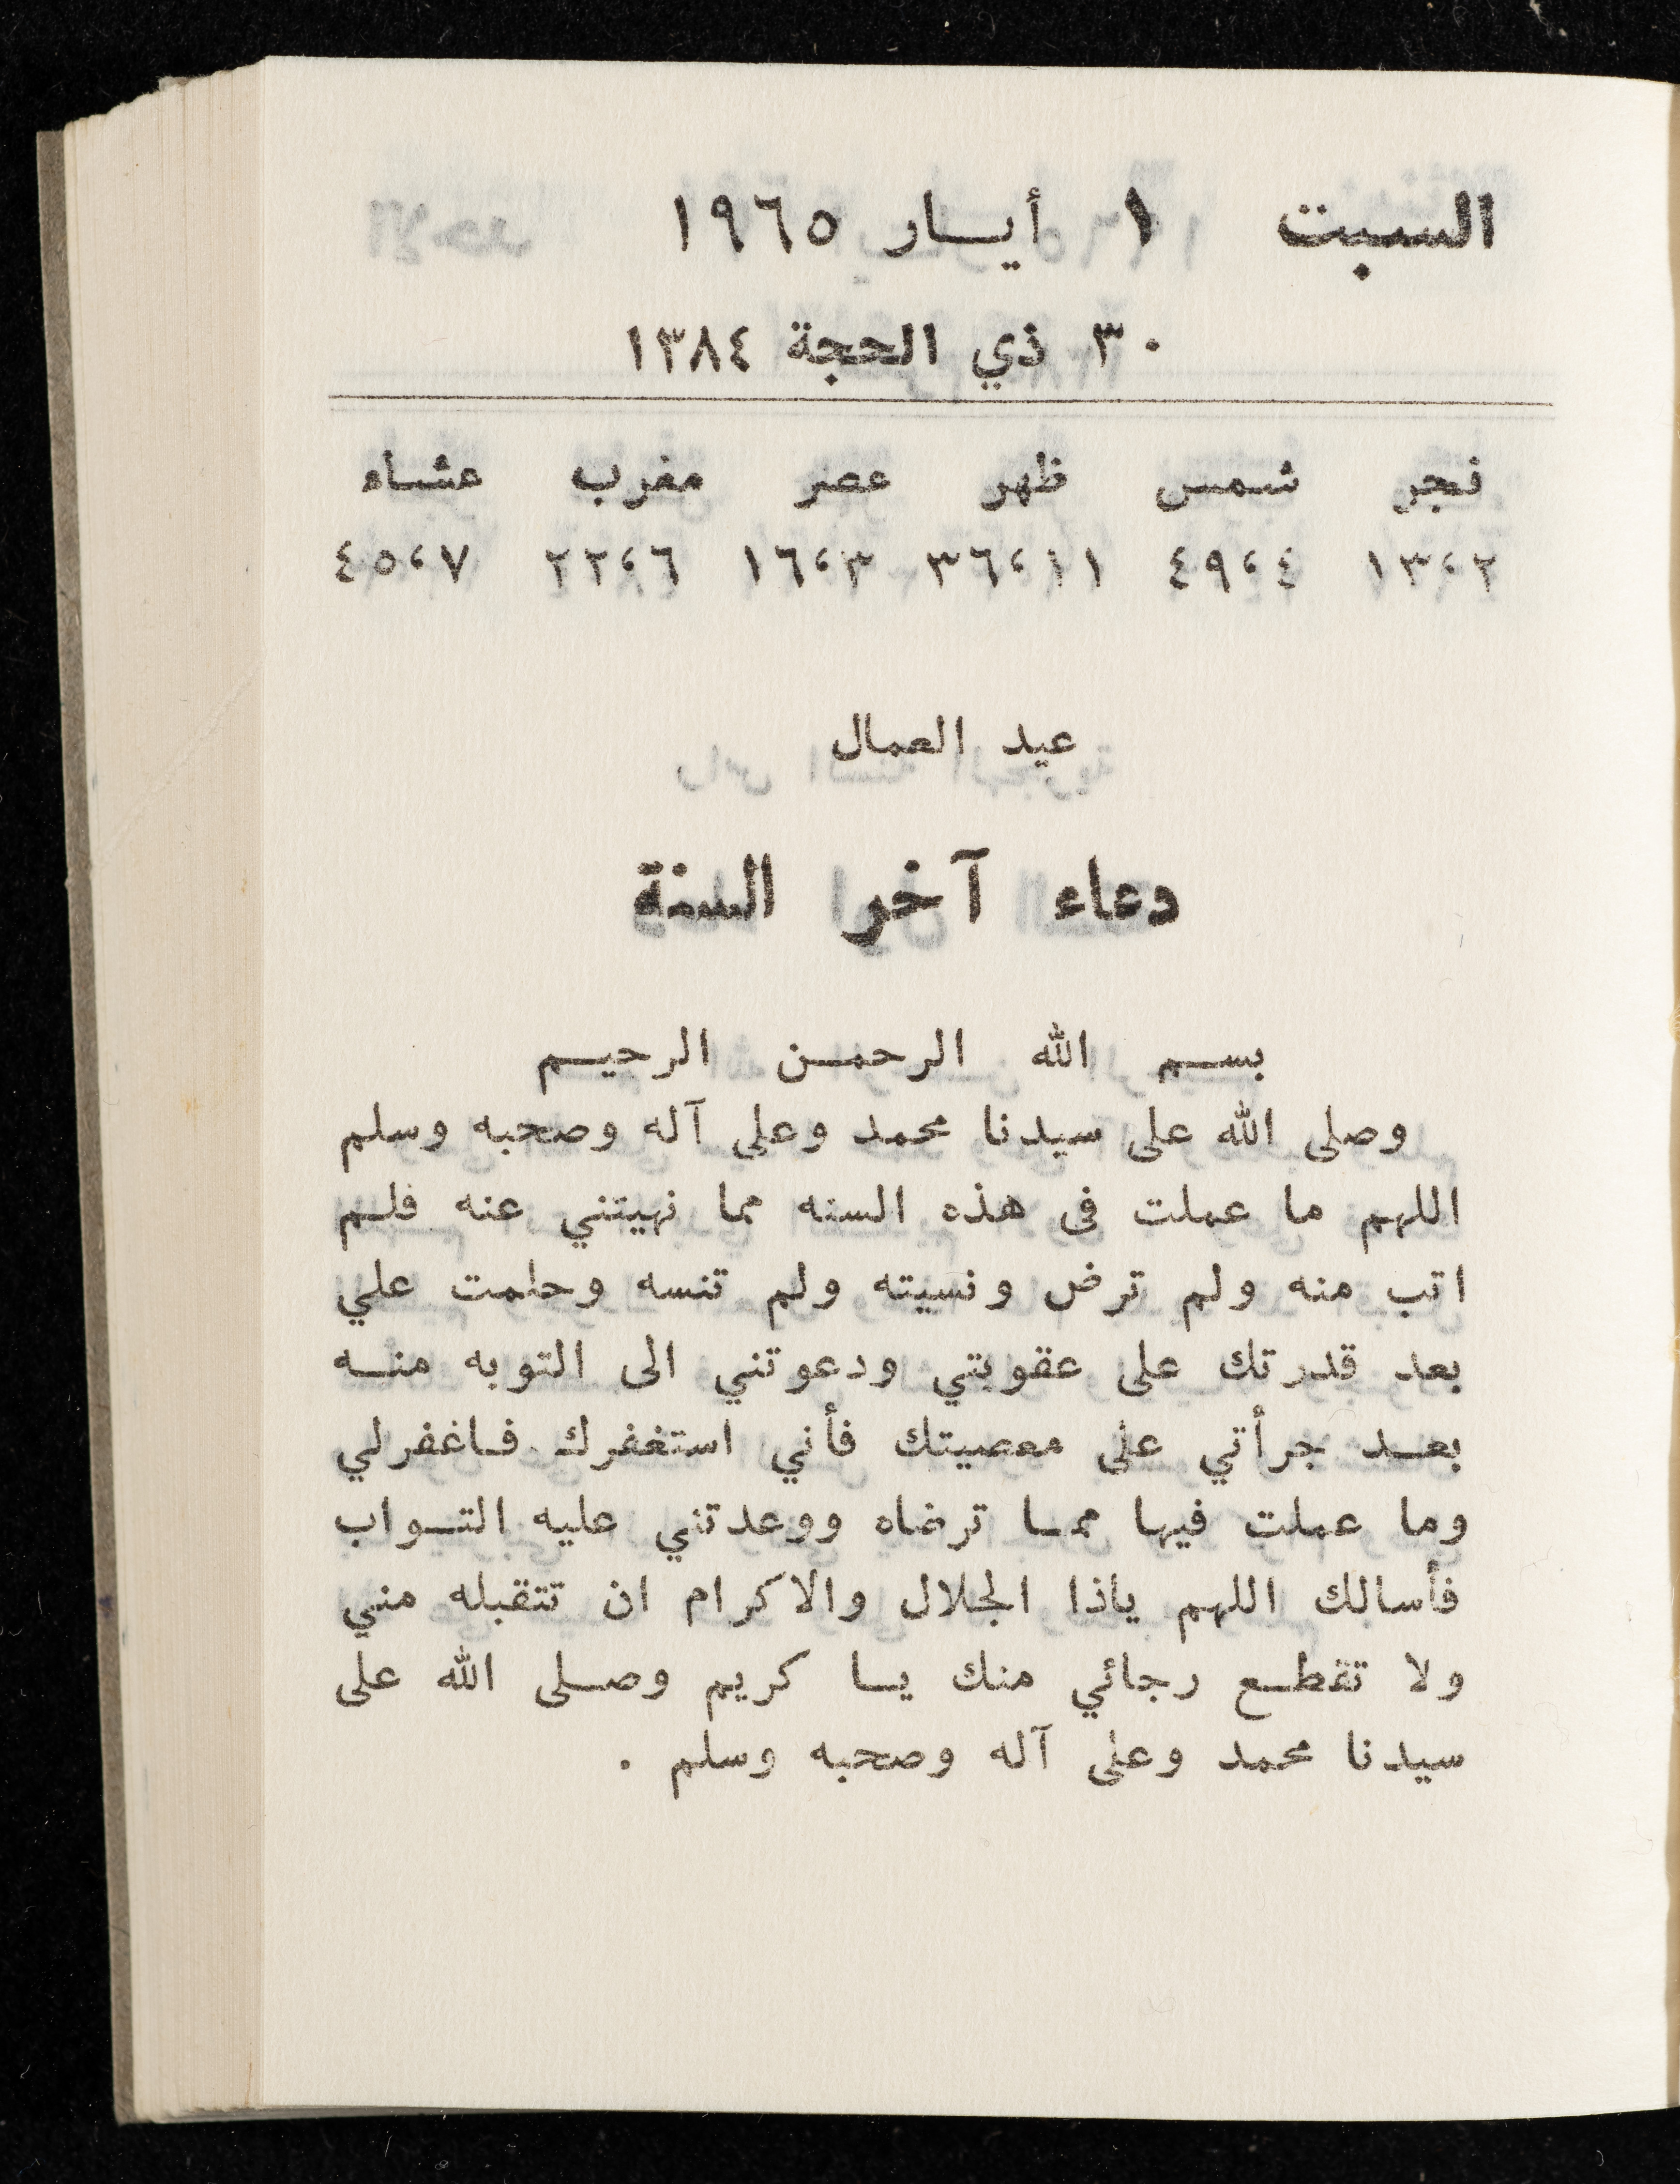 السبت ١ أيار ١٩٦٥
٣٠ ذي الحجة ١٣٨٤
فجر شمس ظهر عصر مغرب عشاء
١٣،٢ ٤٩،٤ ٣٦،١١ ١٦،٣ ٢٢،٦ ٤٥،٧
عيد العمال
دعاء آخر السنة
بسم الله الرحمن الرحيم
وصلى الله على سيدنا محمد وعلى آله وصحبه وسلم
اللهم ما عملت فى هذه السنه مما نهيتني عنه فلم
اتب منه ولم ترض ونسيته ولم تنسه وحلمت علي
بعد قدرتك على عقوبتي ودعوتني الى التوبه منه
بعد جرأتي على معصيتك فأني استغفرك فاغفرلي
وما عملت فيها مما ترضاه ووعدتني عليه التواب
فأسالك اللهم ياذا الجلال والاكرام ان تتقبله مني
ولا تقطع رجائي منك يا كريم وصلى الله على
سيدنا محمد وعلى آله وصحبه وسلم .